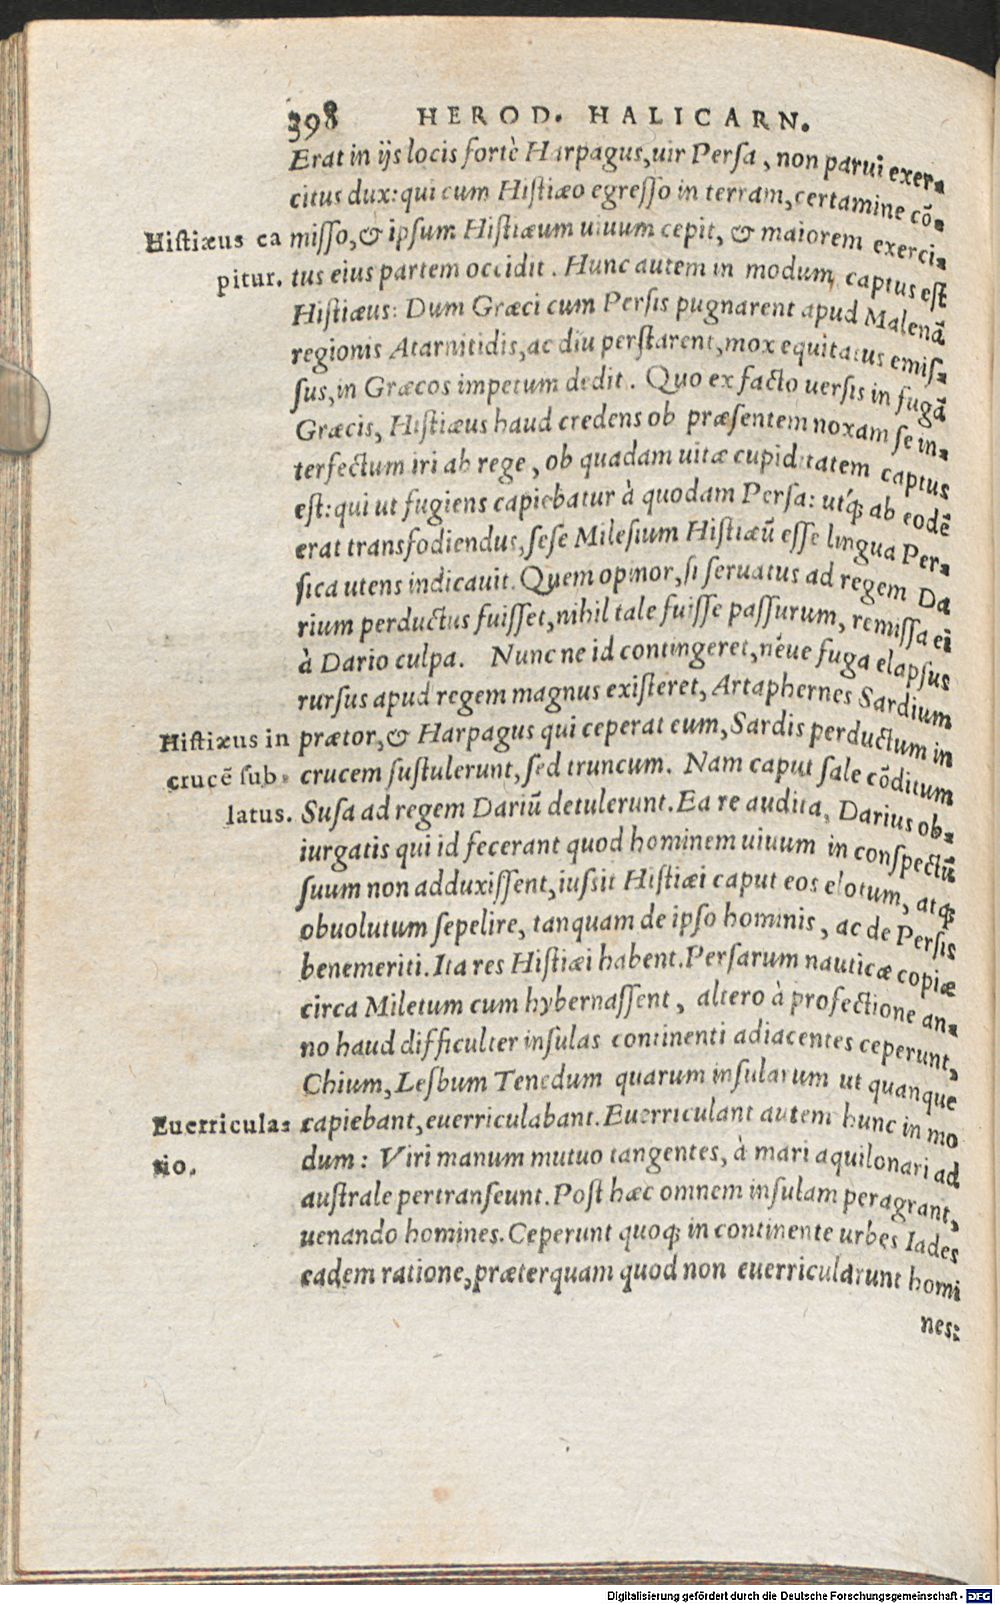 398 HEROD. HALICARN.
Erat in ijs locis fortè Harpagus, uir Persa, non parui exer-
citus dux: qui cum Histiæo egresso in terram, certamine cõ-
Histiæus ca
misso, & ipsum Histiæum uiuum cepit, & maiorem exerci-
pitur.
tus eius partem occidit. Hunc autem in modum captus est
Histiæus: Dum Græci cum Persis pugnarent apud Malenã
regionis Atarnitidis, ac diu perstarent, mox equitatus emis-
sus, in Græcos impetum dedit. Quo ex facto uersis in fugã
Græcis, Histiæus haud credens ob præsentem noxam se in-
terfectum iri ab rege, ob quadam uitæ cupiditatem captus
est: qui ut fugiens capiebatur à quodam Persa: utq́; ab eodẽ
erat transfodiendus, sese Milesium Histiæũ esse lingua Per-
sica utens indicauit. Quem opinor, si seruatus ad regem Da
rium perductus fuisset, nihil tale fuisse passurum, remissa ei
à Dario culpa. Nunc ne id contingeret, néue fuga elapsus
rursus apud regem magnus existeret, Artaphernes Sardium
Histiæus in
prætor, & Harpagus qui ceperat eum, Sardis perductum in
crucẽ sub-
crucem sustulerunt, sed truncum. Nam caput sale cõditum
latus.
Susa ad regem Dariũ detulerunt. Ea re audita, Darius ob-
iurgatis qui id fecerant quod hominem uiuum in conspectũ
suum non adduxissent, iussit Histiæi caput eos elotum, atq;
obuolutum sepelire, tanquam de ipso hominis, ac de Persis
benemeriti. Ita res Histiæi habent. Persarum nauticæ copiæ
circa Miletum cum hybernassent, altero à profectione an-
no haud difficulter insulas continenti adiacentes ceperunt,
Chium, Lesbum Tenedum quarum insularum ut quanque
Euerricula-
capiebant, euerriculabant. Euerriculant autem hunc in mo
tio.
dum: Viri manum mutuo tangentes, à mari aquilonari ad
australe pertranseunt. Post hæc omnem insulam peragrant,
uenando homines. Ceperunt quoq; in continente urbes Iades
eadem ratione, præterquam quod non euerricularunt homi
nes:
Digitalisierung gefördert durch die Deutsche Forschungsgemeinschaft - DFG